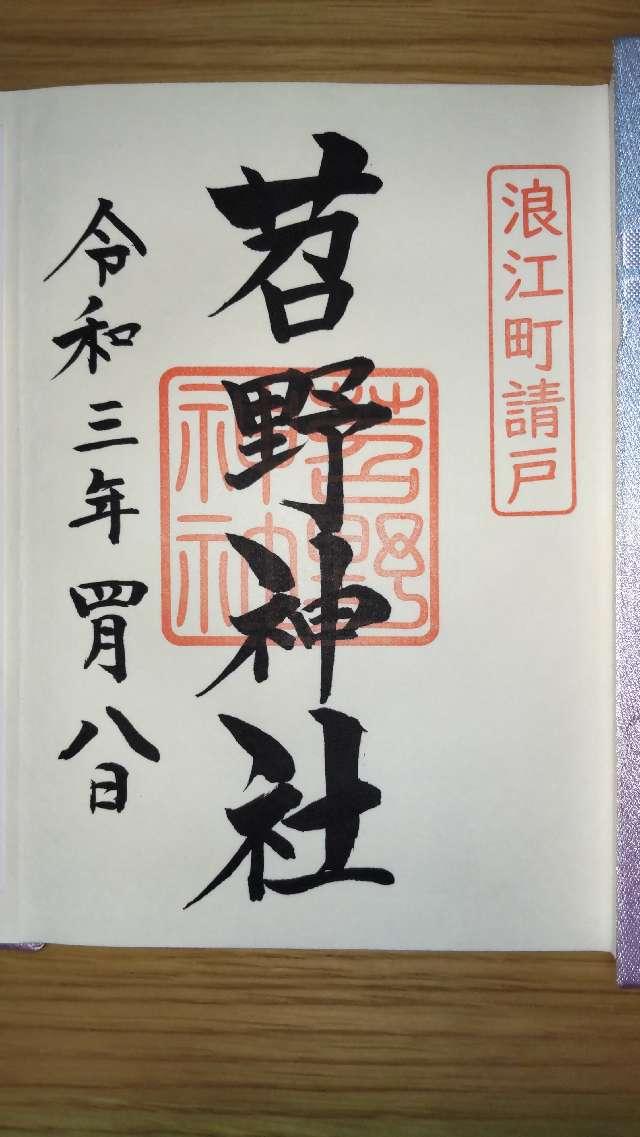 浪江町請戸
苕野神社
苕野
神社
令和三年四月八日